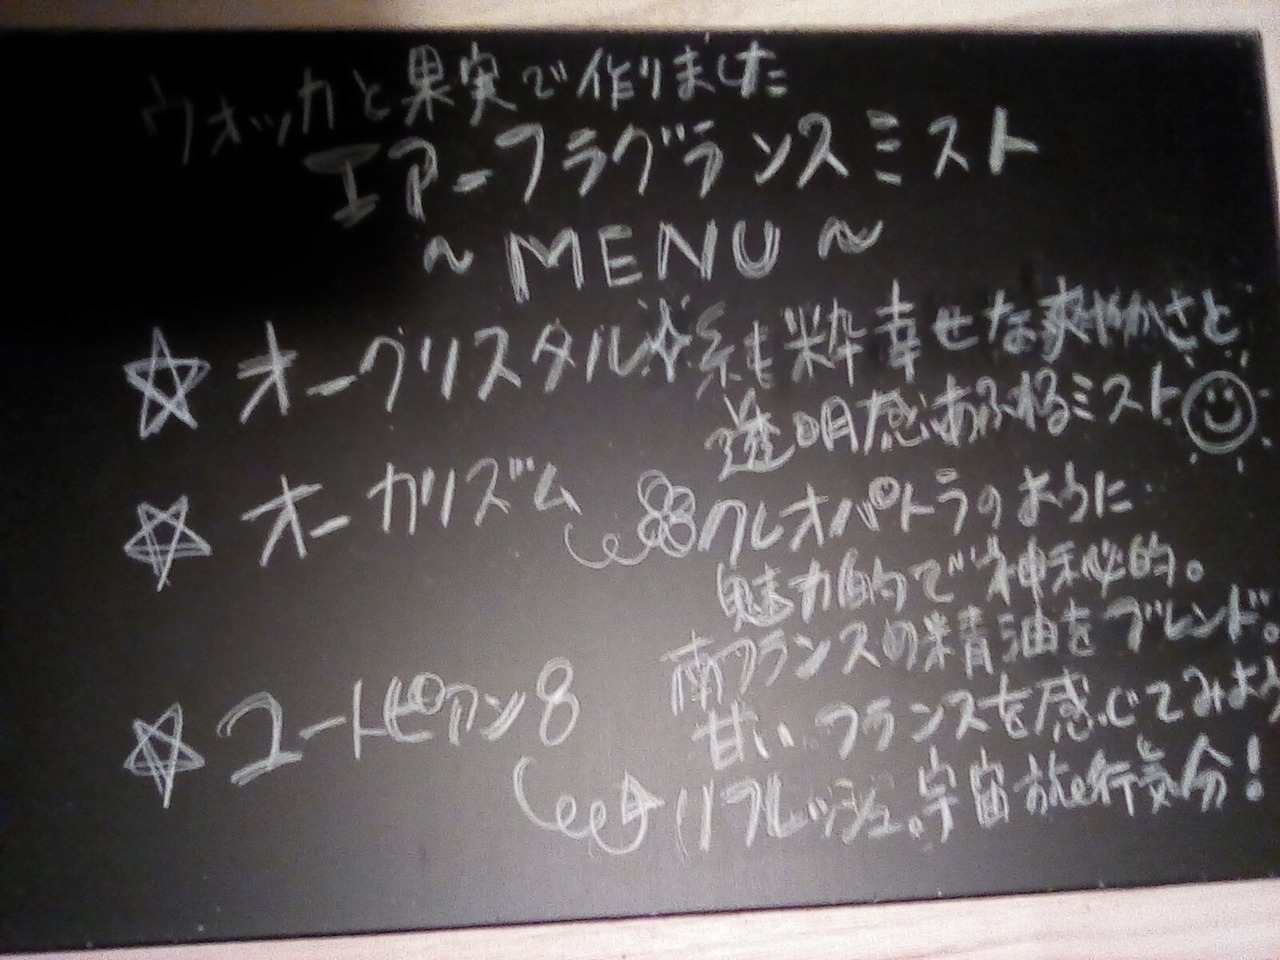 ウォッカと果実で作りました
エアーフラグランスミスト
～MENU～
☆オークリスタル 純粋幸せな爽やかさと
透明感あふれるミスト
☆オーガリズム クレオパトラのように
魅力的で神秘的。
南フランスの精油をブレンド。
甘いフランスを感じてみよう
☆ユートピアン8
リフレッシュ。宇宙旅行気分！